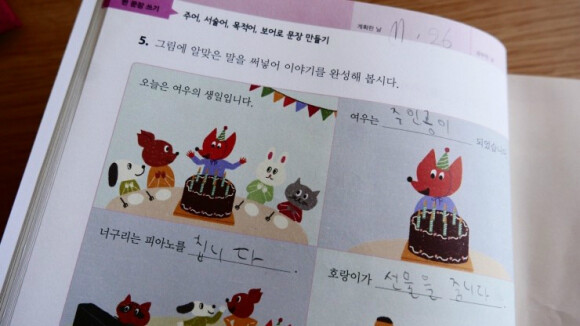 한 문장 쓰기
주어, 서술어, 목적어, 보어로 문장 만들기
11. 26
5. 그림에 알맞은 말을 써넣어 이야기를 완성해 봅시다.
오늘은 여우의 생일입니다.
여우는 주인공이 되었습니다
너구리는 피아노를 칩니다.
호랑이가 선물을 줍니다.